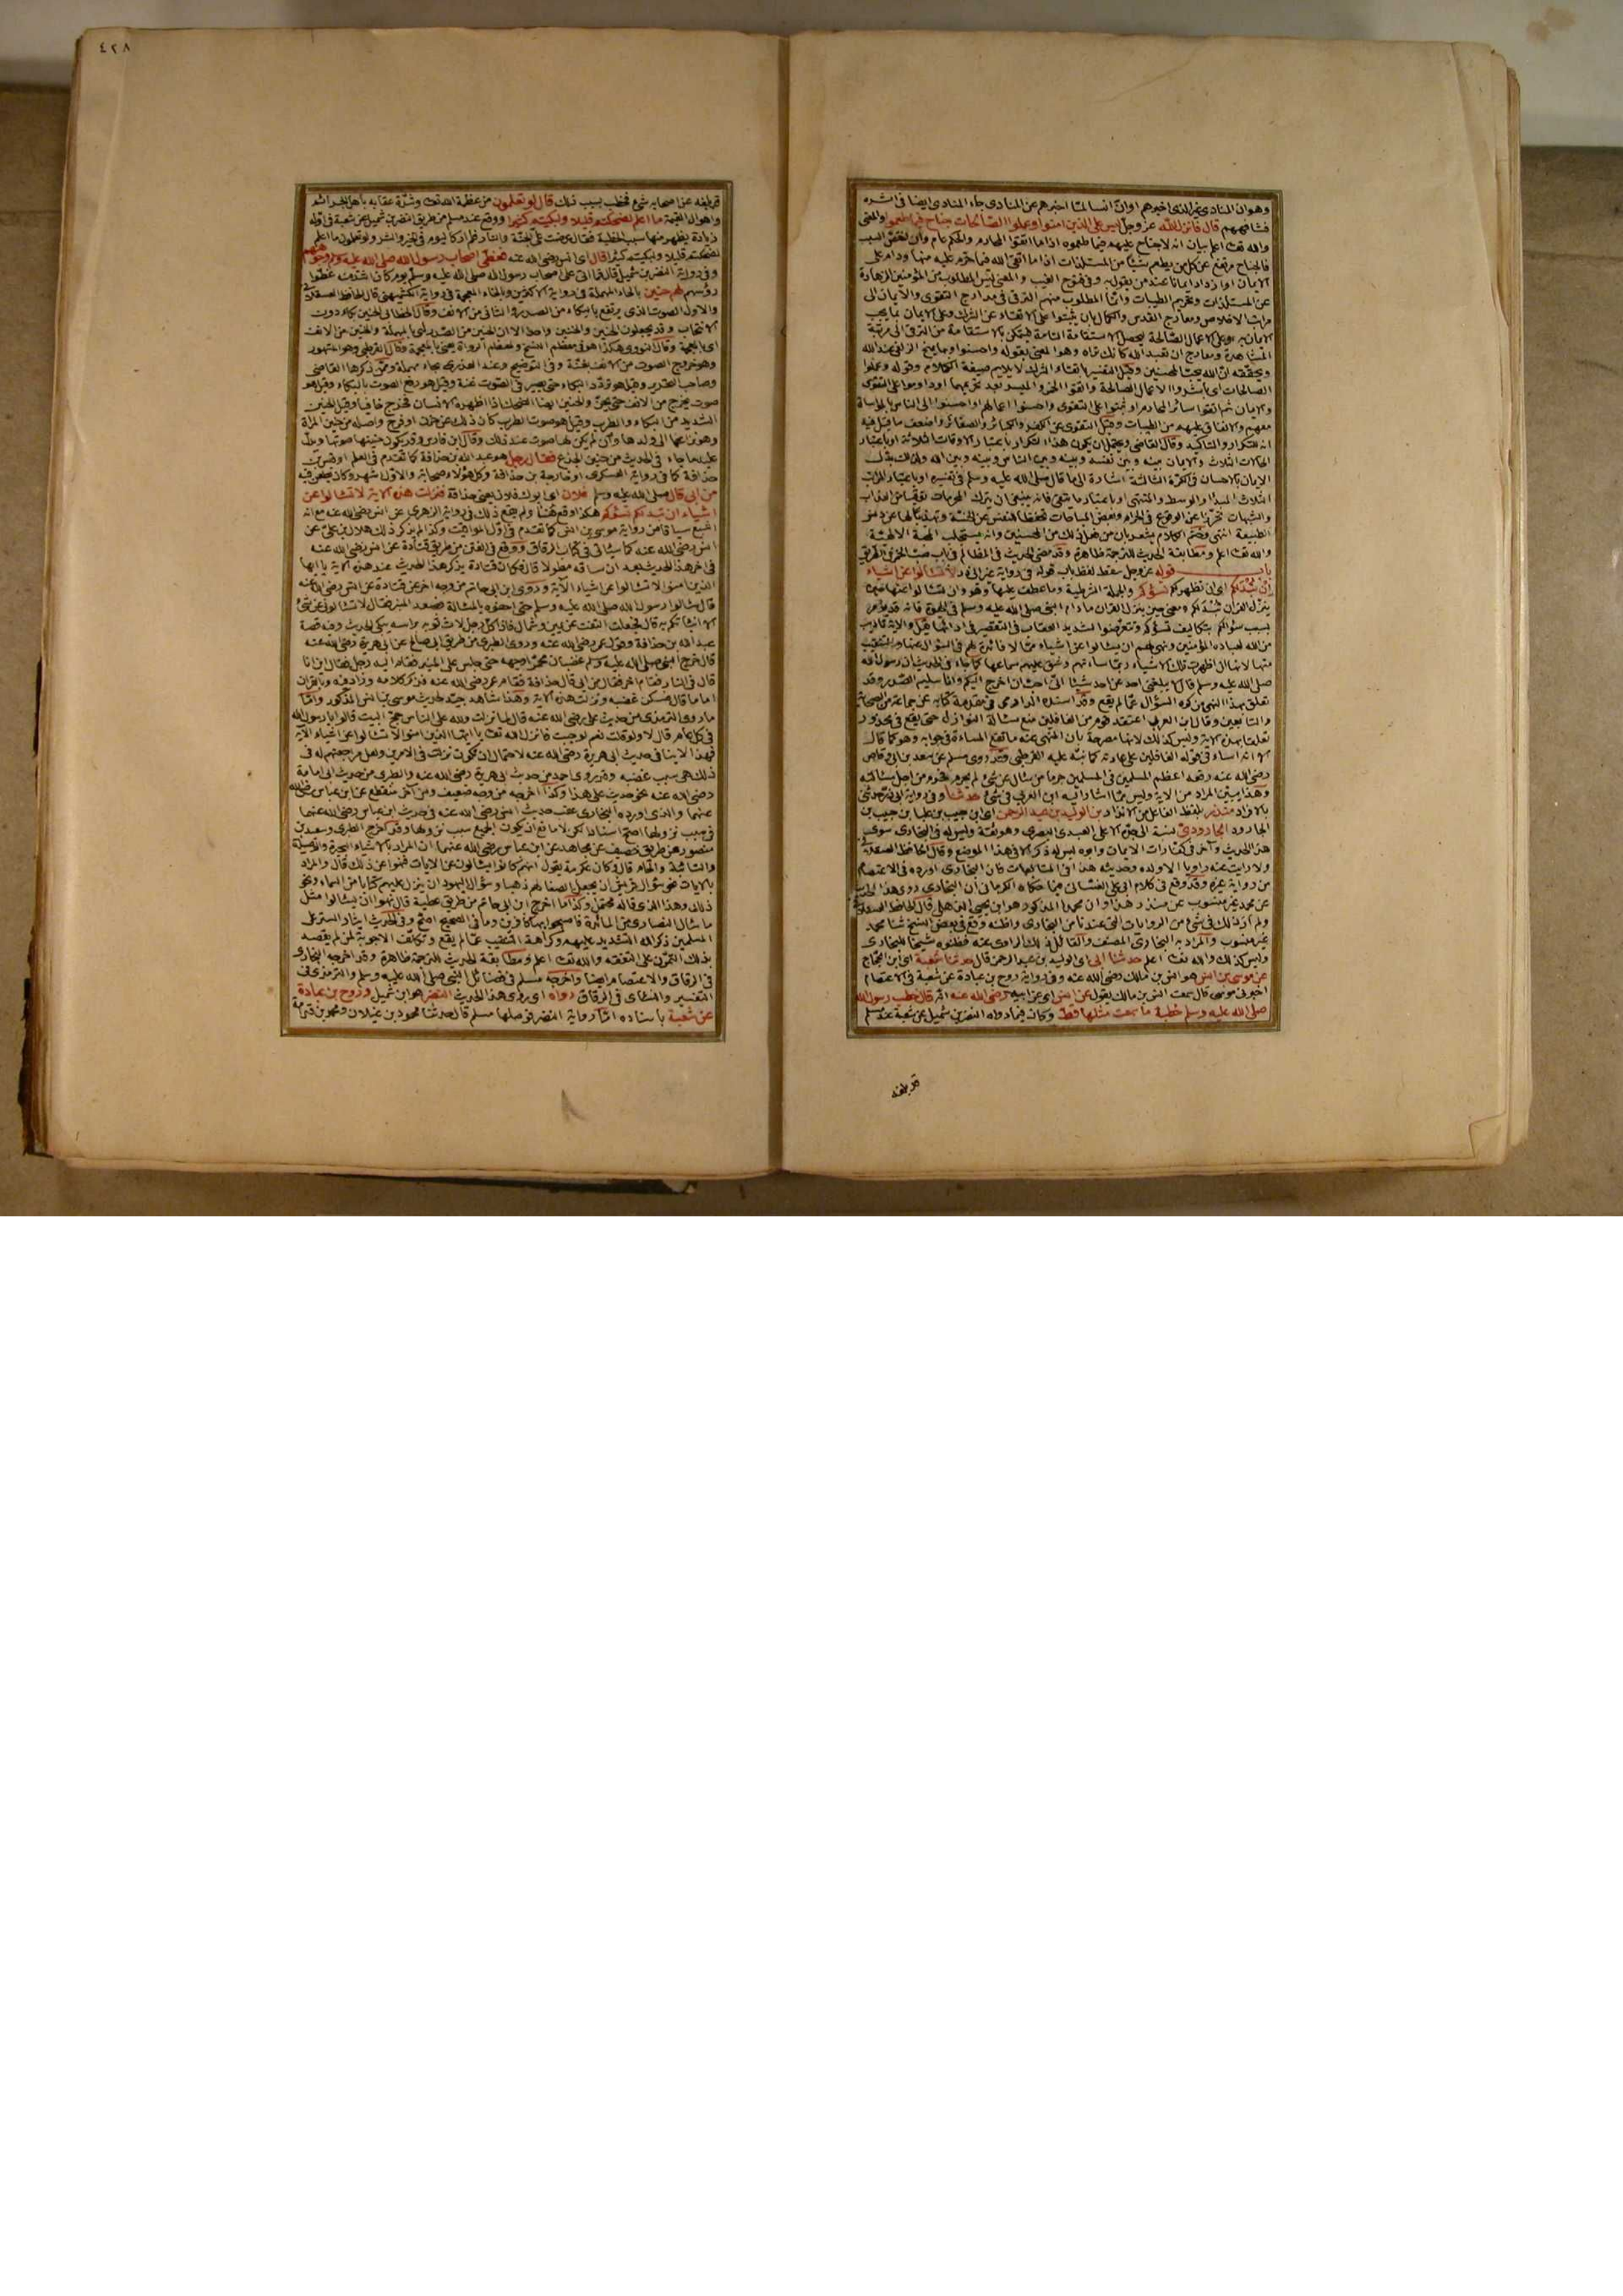 وهو ان المنادى غير الذى اخبرهم او ان انسا لمّا اخبرهم عن المنادى جاء المنادى ايضا فى اثره
فشافههم قال فانزل الله عز وجل ليس على الذين امنوا وعملوا الصالحات جناح فيما طعموا والمعنى
والله تعا اعلم بيان انه لا جناح عليهم فيما طعموه اذا ما اتقوا المحارم والحكم عام وان اختص السبب
فالجناح مرتفع عن كل من يطعم شيئا من المستلذات اذا ما اتقى الله فيما حرم عليه منها ودام على
الايمان او ازداد ايمانا عند من يقول به وفى فتوح الغيب والمعنى ليس المطلوب من المؤمنين الزهادة
عن المستلذات وتحريم الطيبات وانما المطلوب منهم الترقى فى مدارج التقوى والايمان الى
مراتب الاخلاص ومعارج القدس والكمال بان يثبتوا على الاتقاء عن الشرك وعلى الايمان بما يجب
الايمان به وعلى الاعمال الصالحة ليحصل الاستقامة التامة ليتمكن بالاستقامة من الترقى الى مرتبة
المشاهدة ومعارج ان تعبد الله كانك تراه وهذا المعنى بقوله واحسنوا وبها يمنح الزلفى عند الله
ويحققه ان الله يحب المحسنين وقيل التفسير باتقاء الشرك لا يلايم صيغة الكلام وقوله وعملوا
الصالحات اى باشروا الاعمال الصالحة واتقوا الخمر والميسر بعد تحريمهما او داوموا على التقوى
والايمان ثم اتقوا سائر المحارم او ثبتوا على التقوى واحسنوا اعمالهم او احسنوا الى الناس بالمواساة
معهم والانفاق عليهم من الطيبات وقيل التقوى عن الكفر والكبائر والصغائر واضعف ما قيل فيه
انه للتكرار والتاكيد وقال القاضى ويحتمل ان يكون هذا التكرار باعتبار الاوقات الثلاثة او باعتبار
الحالات الثلاث والايمان بينه وبين نفسه وبينه وبين الناس وبينه وبين الله ولذلك بدل
الايمان بالاحسان فى الكرّة الثالثة اشارة الى ما قال صلى الله عليه وسلم فى تفسيره او باعتبار المراتب
الثلاث المبدأ والوسط والمنتهى او باعتبار ما يتقى فانه ينبغى ان يترك المحرمات توقيا من العذاب
والشبهات تحرزا عن الوقوع فى الحرام وبعض المباحات تحفظا للنفس عن الخسة وتهذيبا لها عن دنس
الطبيعة انتهى وختم الكلام يشعر بان من فعل ذلك من المحسنين وانه يستجلب المحبة الالهية
والله تعا اعلم ومطابقة الحديث للترجمة ظاهرة وقد مضى الحديث فى المظالم فى باب صب الخمر فى الطريق
باب قوله عز وجل سقط لفظ باب قوله فى رواية غير ابى ذر لا تسالوا عن اشياء
ان تبد لكم اى ان تظهر لكم تسؤكم والجملة الشرطية وما عطف عليها وهو وان تسالوا عنها حين
ينزل القران تبد لكم ومعنى حين ينزل القران ما دام النبى صلى الله عليه وسلم فى الحيوة فانه قد يؤمر
بسبب سؤالكم بتكاليف تسؤكم وتتعرضوا لشديد العقاب فى التقصير فى ادائها قيل والاية تاديب
من الله لعباده المؤمنين ونهى لهم ان يسالوا عن اشياء ممّا لا فائدة لهم فى السؤال عنها والتنقيب
عنها لانها ان اظهرت تلك الاشياء ربما ساءتهم وشق عليهم سماعها كما جاء فى الحديث ان رسول الله
صلى الله عليه وسلم قال لا يبلغنى احد عن احد شيئا انى احب ان اخرج اليكم وانا سليم الصدر وقد
تعلق بهذا النهى من كره السؤال عمّا لم يقع وقد اسنده الدارمى فى مقدمة كتابه عن جماعة من الصحابة
والتابعين وقال ابن العربى اعتقد قوم من الغافلين منع مسألة النوازل حتى يقع فى محذور
تعلقا بهذه الاية وليس كذلك لانها مصرحة بان المنهى عنه ما تقع المساءة فى جوابه وهو كما قال
الا انه اساء فى قوله الغافلين على عادته كما نبّه عليه القرطبى وقد روى مسلم عن سعد بن ابى وقاص
رضى الله عنه رفعه اعظم المسلمين فى المسلمين جرما من سأل عن شئ لم يحرم فحرم من اجل مسألته
وهذا يبين المراد من الاية وليس ممّا اشار اليه ابن العربى فى شئ حدثنا وفى رواية ابى ذر حدثنى
بالافراد منذر بلفظ الفاعل من الانذار بن الوليد بن عبد الرحمن اى ابن حبيب بن علباء بن حبيب بن
الجارود الجارودى نسبة الى جده الاعلى العبدى البصرى وهو ثقة وليس له فى البخارى سوى
هذا الحديث وآخر فى كفارات الايمان وابوه ليس له ذكر الا فى هذا الموضع وقال الحافظ العسقلانى
ولا رايت عنه راويا الا ولده وحديثه هذا فى المتابعات فان البخارى اورده فى الاعتصام
من رواية غيره وقد وقع فى كلام ابى على الغسانى فيما حكاه الكرمانى ان البخارى روى هذا الحديث
عن محمد غير منسوب عن منذر هذا وان محمدا المذكور هو ابن يحيى الذهلى قال الحافظ العسقلانى
ولم ار ذلك فى شئ من الروايات التى عندنا من البخارى واظنه وقع فى بعض النسخ ثنا محمد
غير منسوب والمراد به البخارى المصنف والقائل ذلك الراوى عنه فظنوه شيخا للبخارى
وليس كذلك والله تعا اعلم حدثنا ابى اى الوليد بن عبد الرحمن قال حدثنا شعبة اى ابن الحجاج
عن موسى بن انس هو انس بن مالك رضى الله عنه وفى رواية روح بن عبادة عن شعبة فى الاعتصام
اخبرنى موسى قال سمعت انس بن مالك يقول عن انس اى عن ابيه رضى الله عنه انه قال خطب رسول الله
صلى الله عليه وسلم خطبة ما سمعت مثلها قط وكان فيما رواه النضر بن شميل عن شعبة عند مسلم
قد بلغه
٤٢٨
قد بلغه عن اصحابه شئ فخطب بسبب ذلك قال لو تعلمون من عظمة الله تعا وشدّة عقابه باهل الجرائم
واهوال القيمة ما اعلم لضحكتم قليلا ولبكيتم كثيرا ووقع عند مسلم من طريق النضر بن شميل عن شعبة فى اوله
زيادة يظهر منها سبب الخطبة فقال عرضت علىّ الجنة والنار فلم ار كاليوم فى الخير والشر ولو تعلمون ما اعلم
لضحكتم قليلا ولبكيتم كثيرا قال اى انس رضى الله عنه فغطى اصحاب رسول الله صلى الله عليه وسلم وجوههم
وفى رواية النضر بن شميل قال فما اتى على اصحاب رسول الله صلى الله عليه وسلم يوم كان اشد منه غطوا
رؤسهم لهم حنين بالحاء المهملة فى رواية الاكثرين وبالخاء المعجمة فى رواية الكشميهنى قال الحافظ العسقلانى
والاول الصوت الذى يرتفع بالبكاء من الصدر والثانى من الانف وقال الخطابى الحنين بكاء دون
الانتحاب وقد يجعلون الحنين والخنين واحدا الا ان الحنين من الصدر يعنى بالمهملة والخنين من الانف
اى بالمعجمة وقال النووى هكذا هو فى معظم النسخ ولمعظم الرواة يعنى بالمعجمة وقال القرطبى وهو المشهور
وهو خروج الصوت من الانف بغنّة وفى التوضيح وعند العذرى بحاء مهملة وممّن ذكرها القاضى
وصاحب التحرير وقيل هو تردد البكاء حتى يصير فى الصوت غنة وقيل هو رفع الصوت بالبكاء وقيل هو
صوت يخرج من الانف حتى يخنّ والخنين ايضا الضحك اذا اظهره الانسان فخرج خافيا وقيل الحنين
الشديد من البكاء والطرب وقيل هو صوت الطرب كان ذلك عن حزن او فرح واصله من حنين المراة
وهو نزاعها الى ولدها وان لم يكن لها صوت عند ذلك وقال ابن فارس وقد يكون حنينها صوتها ويدل
عليه ما جاء فى الحديث من حنين الجذع فقال رجل هو عبد الله بن حذافة كما تقدم فى العلم او قيس بن
حذافة كما فى رواية العسكرى او خارجة بن حذافة وكل هؤلاء صحابة والاول اشهر وكان يطعن فيه
من ابى قال صلى الله عليه وسلم فلان اى ابوك فلان يعنى حذافة فنزلت هذه الاية لا تسالوا عن
اشياء ان تبد لكم تسؤكم هكذا وقع هنا ولم يقع ذلك فى رواية الزهرى عن انس رضى الله عنه مع انه
اشبع سياقا من رواية موسى بن انس كما تقدم فى اول المواقيت وكذا لم يذكر ذلك هلال بن على عن
انس رضى الله عنه كما سياتى فى كتاب الرقاق ووقع فى الفتن من طريق قتادة عن انس رضى الله عنه
فى اخر هذا الحديث بعد ان ساقه مطولا قال فكان قتادة يذكر هذا الحديث عند هذه الاية يا ايها
الذين امنوا لا تسالوا عن اشياء الاية وروى ابن ابى حاتم من وجه اخر عن قتادة عن انس رضى الله عنه
قال سألوا رسول الله صلى الله عليه وسلم حتى احفوه بالمسألة فصعد المنبر فقال لا تسالونى عن شئ
الا انباتكم به قال فجعلت التفت عن يمين وشمال فاذا كل رجل لاث ثوبه براسه يبكى الحديث وفيه قصة
عبد الله بن حذافة وقول عمر رضى الله عنه وروى الطبرى من طريق ابى صالح عن ابى هريرة رضى الله عنه
قال خرج النبى صلى الله عليه وسلم غضبان محمرّا وجهه حتى جلس على المنبر فقام اليه رجل فقال اين انا
قال فى النار فقام اخر فقال من ابى قال حذافة فقام عمر رضى الله عنه فذكر كلامه وزاد فيه وبالقران
اماما قال فسكن غضبه ونزلت هذه الاية وهذا شاهد جيّد لحديث موسى بن انس المذكور وامّا
ما روى الترمذى من حديث على رضى الله عنه قال لما نزلت ولله على الناس حج البيت قالوا يا رسول الله
فى كل عام قال لا ولو قلت نعم لوجبت فانزل الله تعا يا ايها الذين امنوا لا تسالوا عن اشياء الاية
فهذا لا ينافى حديث ابى هريرة رضى الله عنه لاحتمال ان تكون نزلت فى الامرين ولعل مراجعتهم له فى
ذلك هى سبب غضبه وقد روى احمد من حديث ابى هريرة رضى الله عنه والطبرى من حديث ابى امامة
رضى الله عنه نحو حديث على هذا وكذا اخرجه من وجه ضعيف ومن آخر منقطع عن ابن عباس رضى الله
عنهما والذى اورده البخارى عقب حديث انس رضى الله عنه فى حديث ابن عباس رضى الله عنهما
فى سبب نزولها اصح اسنادا لكن لا مانع ان يكون الجميع سبب نزولها وقد اخرج الطبرى وسعيد بن
منصور من طريق خصيف عن مجاهد عن ابن عباس رضى الله عنهما ان المراد بالاشياء البحيرة والوصيلة
والسائبة والحام قال وكان عكرمة يقول انهم كانوا يسالون عن الايات فنهوا عن ذلك قال والمراد
بالايات نحو سؤال قريش ان يجعل الصفا لهم ذهبا وسؤال اليهود ان ينزل عليهم كتابا من السماء ونحو
ذلك وهذا الذى قاله محتمل وكذا ما اخرج ابن ابى حاتم من طريق عطية قال نهوا ان يسالوا مثل
ما سال النصارى من المائدة فاصبحوا بها كافرين وما فى الصحيح اصح وفى الحديث ايثار الستر على
المسلمين ذكراله التشديد عليهم وكراهة التنقيب عمّا لم يقع وتكلّف الاجوبة لمن لم يقصد
بذلك التمرّن على التفقه والله تعا اعلم ومطابقة الحديث للترجمة ظاهرة وقد اخرجه البخارى
فى الرقاق والاعتصام ايضا واخرجه مسلم فى فضائل النبى صلى الله عليه وسلم والترمذى فى
التفسير والنسائى فى الرقاق رواه اى روى هذا الحديث النضر هو ابن شميل وروح بن عبادة
عن شعبة باسناده امّا رواية النضر فوصلها مسلم قال حدثنا محمود بن غيلان ومحمد بن قدامة